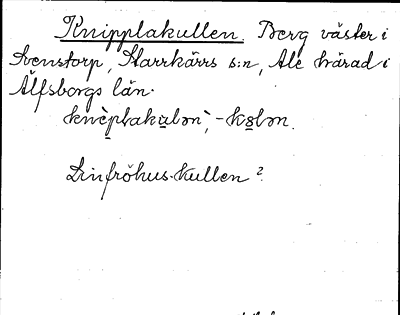 Knipplakullen. Berg väster i
Svenstorp, Starrkärrs s:n, Ale härad i
Älfsborgs län.
knèplakulən, -kolən.
Linfröhus-kullen?